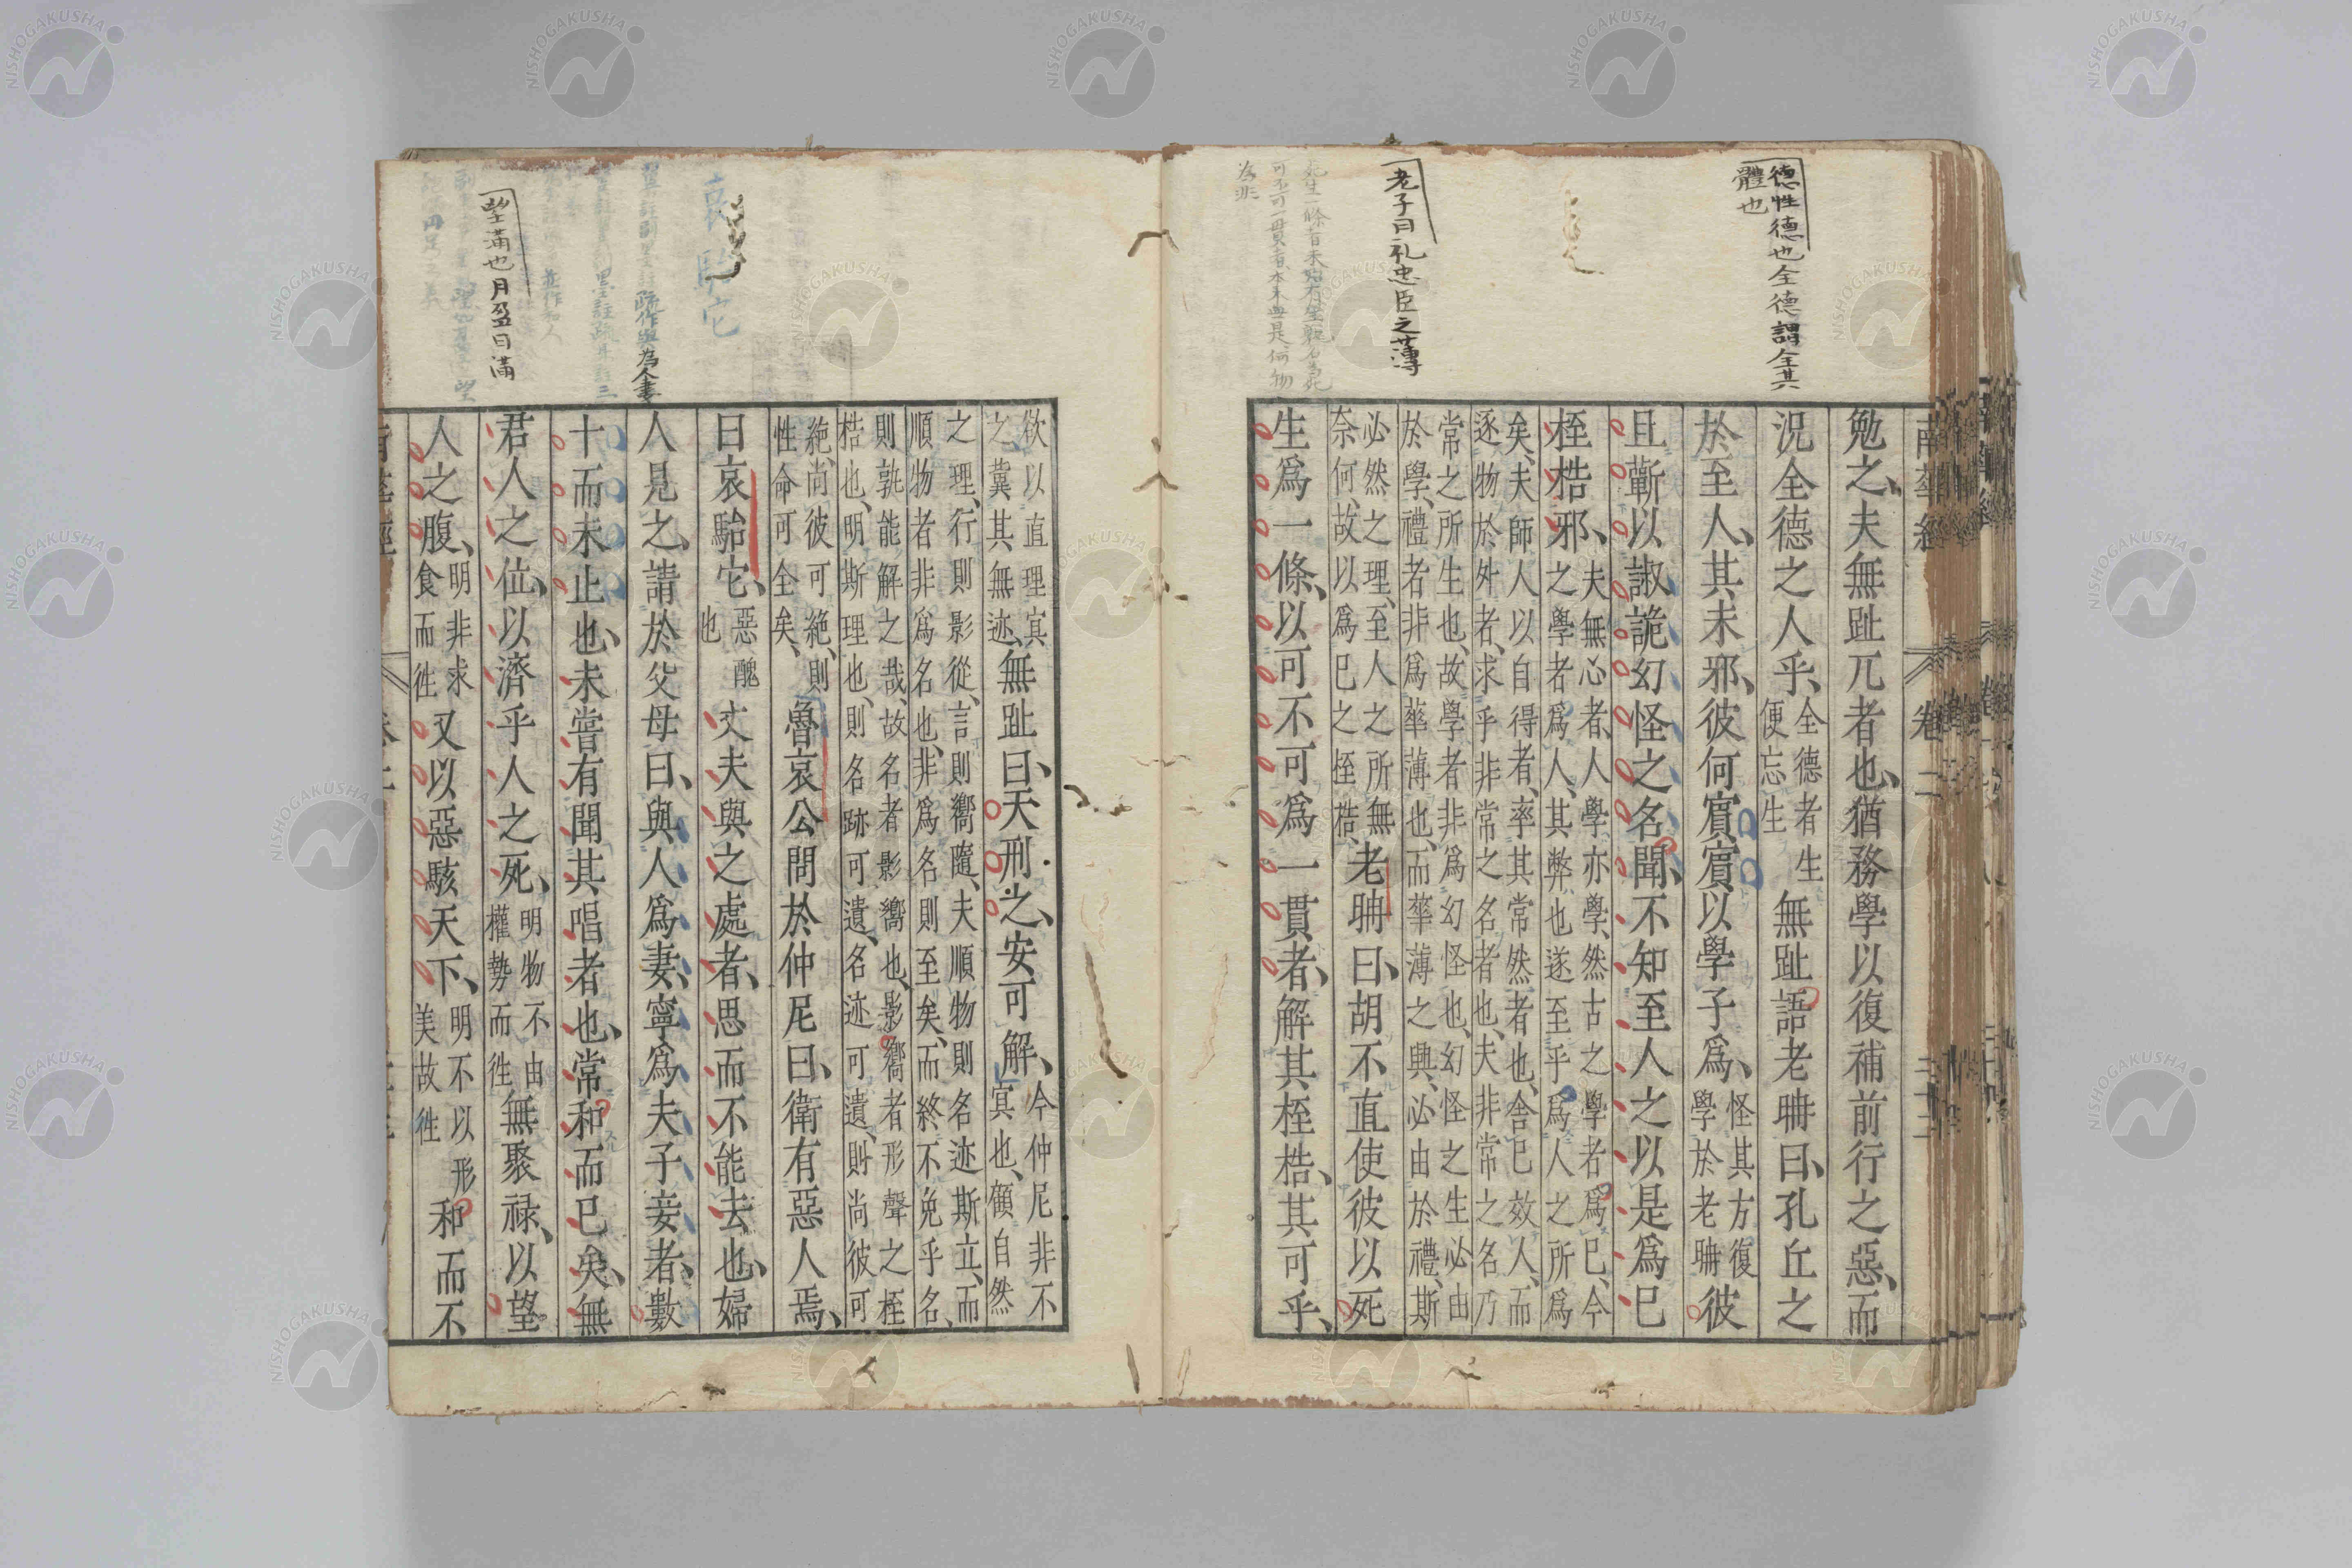 德性德也全德謂全其
體也
老子曰礼忠臣之薄
南華經
卷二
勉之、夫無趾兀者也、猶務學以復補前行之惡、而
況全德之人乎、全德者生便忘生無趾語老聃曰、孔丘之
於至人、其未邪、彼何賓賓以學子爲、怪其方復學於老聃彼
且蘄以諔詭幻怪之名聞、不知至人之以是爲已
桎梏邪、夫無心者、人學、亦學、然古之學者爲已、今之學者爲人、其弊也遂至乎爲人之所爲
矣、夫師人以自得者、率其常然者也、舍已效人、而逐物於外者、求乎非常之名者也、夫非常之名乃
常之所生也、故學者非爲幻怪也、幻怪之生必由於學、禮者非爲華薄也、而華薄之興、必由於禮、斯
必然之理、至人之所無奈何、故以爲已之桎梏、老聃曰、胡不直使彼以死
生爲一條、以可不可爲一貫者、解其桎梏、其可乎、
欲以直理冥之、冀其無迹、無趾曰、天刑之、安可解、今仲尼非不冥也、顧自然
之理、行則影從、言則嚮隨、夫順物則名迹斯立、而順物者非爲名也、非爲名則至矣、而終不免乎名、
則孰能解之哉、故名者影嚮也、影嚮者形聲之桎梏也、明斯理也、則名跡可遺、名迹可遺、則尚彼可
絶、尚彼可絶、則性命可全矣、魯哀公問於仲尼曰、衛有惡人焉、
曰哀駘它、惡醜也丈夫與之處者、思而不能去也、婦
人見之、請於父母曰、與人爲妻、寧爲夫子妾者、數
十而未止也、未嘗有聞其唱者也、常和而已矣、無
君人之位、以濟乎人之死、明物不由權勢而徃無聚禄、以望
人之腹、明非求食而徃又以惡駭天下、明不以形美故徃和而不
哀駘它
為人妻
望滿也月盈曰滿